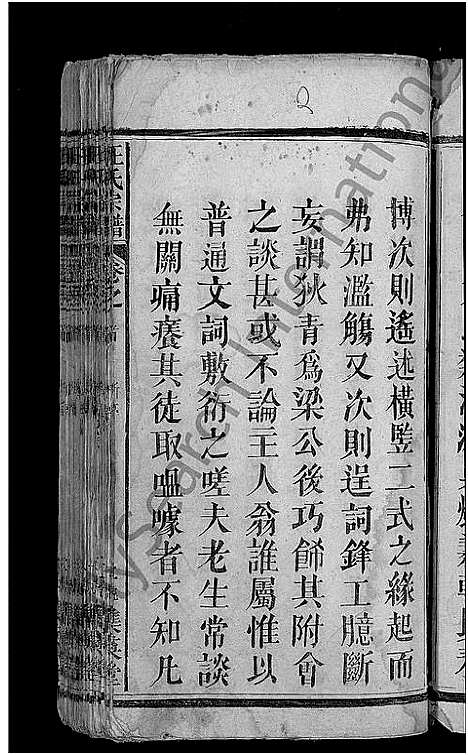 博次則遙述橫豎二式之緣起而
弗知濫觴又次則逞詞鋒工臆斷
妄謂狄青爲梁公後巧餙其附會
之談甚或不論主人翁誰屬惟以
普通文詞敷衍之嗟夫老生常談
無關痛癢其徒取嗢噱者不知凡
汪氏宗譜